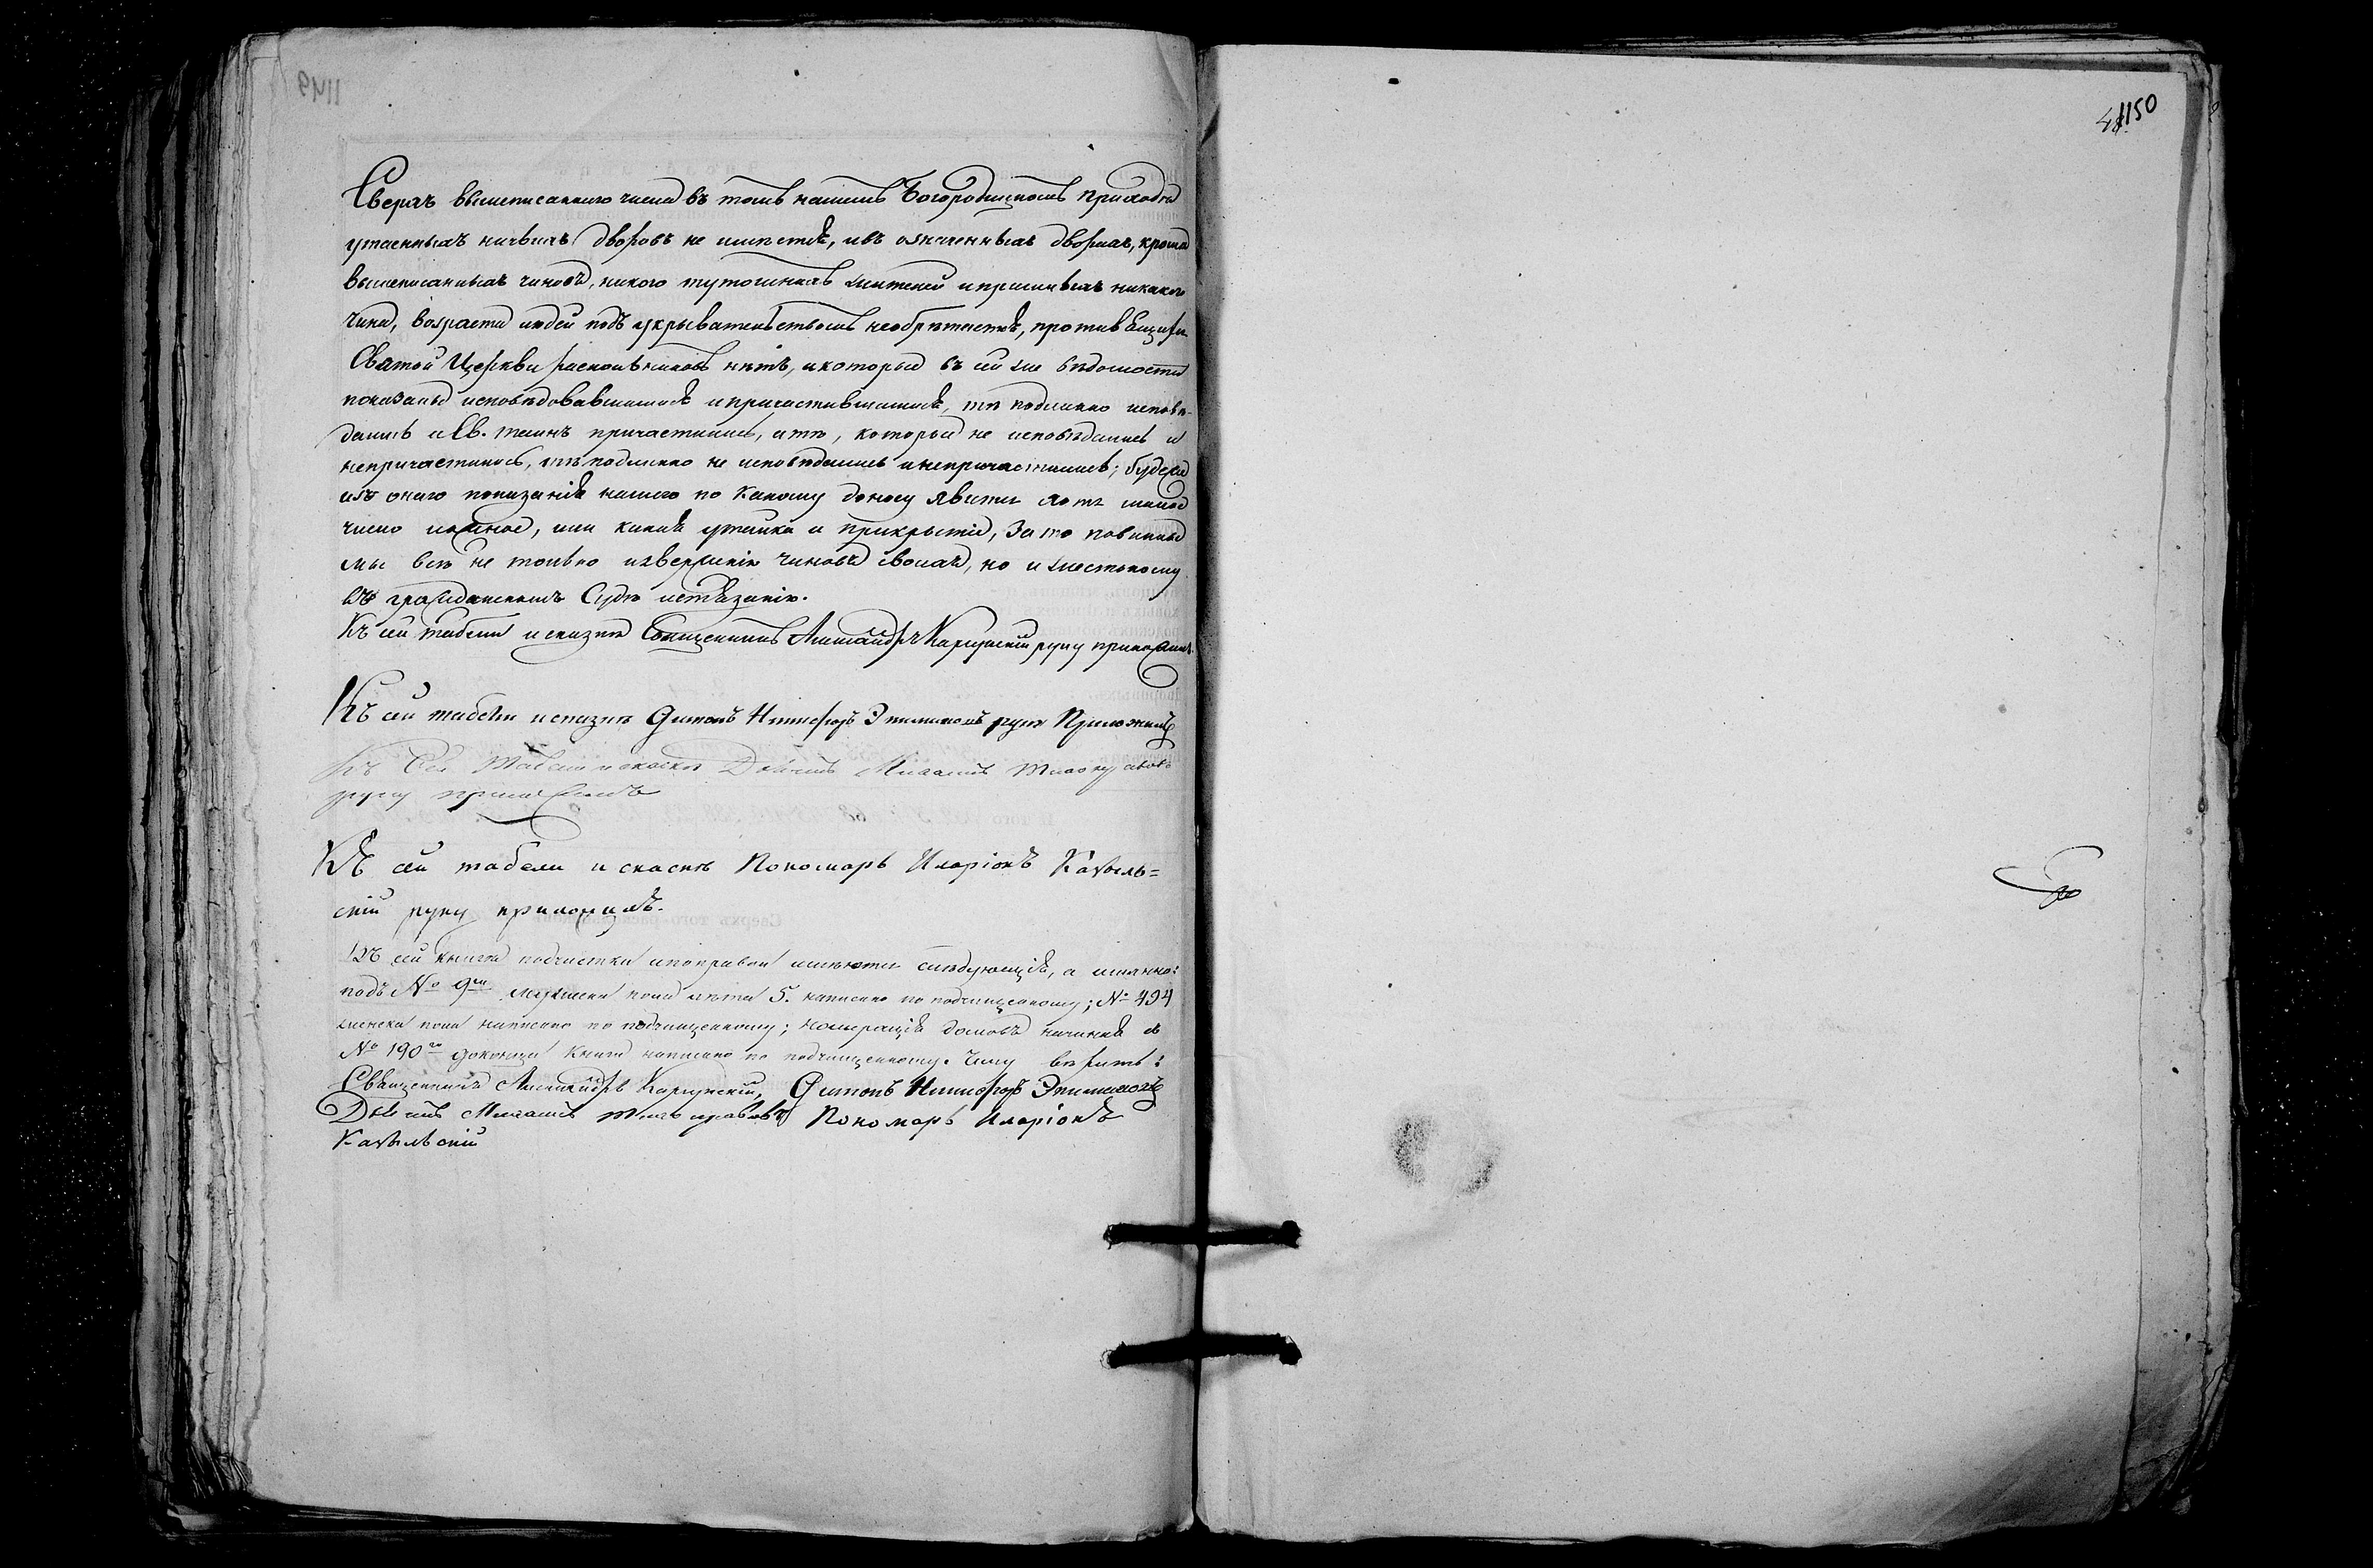 1150
Сверхъ вышеписаннаго числа въ томъ нашемъ Богородицкомъ приходѣ
утаенныхъ никакихъ дворовъ не имѣется, и въ означенныхъ дворахъ, кромѣ
вышеписанныхъ чиновъ, никого тутошнихъ жителей и пришлыхъ никакого
чина, возраста людей подъ укрывательствомъ необрѣтается, противящихся
Святой Церкви раскольниковъ нѣтъ, и которые въ сей же вѣдомости
показаны исповѣдовавшимися и причастившимися, тѣ подлинно исповѣ-
дались и Св. таинъ причастились, а тѣ, которые не исповѣдались и
непричастились, тѣ подлинно не исповѣдались и непричастились; буде же
изъ онаго показанія нашего по какому доносу явится хотя малое
число ложное, или какая утайка и прикрытіе, за то повинны
мы всѣ не только изверженію чиновъ своихъ, но и жестокому
въ гражданскомъ Судѣ истязанію.
Къ сей табели и сказкѣ Священникъ руку приложилъ.
Къ сей табели и сказкѣ Никифоръ руку Приложилъ
Къ Сей Табели и сказкѣ Дьячекъ Михаилъ
руку приложилъ
Къ сей табели и сказкѣ Пономарь Иларіонъ Кахыль=
скій руку приложилъ.
Въ сей книгѣ подчистки и поправки имѣются слѣдующія, а именно:
подъ № 9мъ мужеска пола лѣта 5. написано по подчищенному; № 494
женска пола написано по подчищенному; номерація домовъ начиная съ
№ 190го доконца книги написано по подчищенному. Чему вѣрить:
Священникъ Никифоръ
Дьячекъ Михаилъ Пономарь Иларіонъ
Кахыльскій